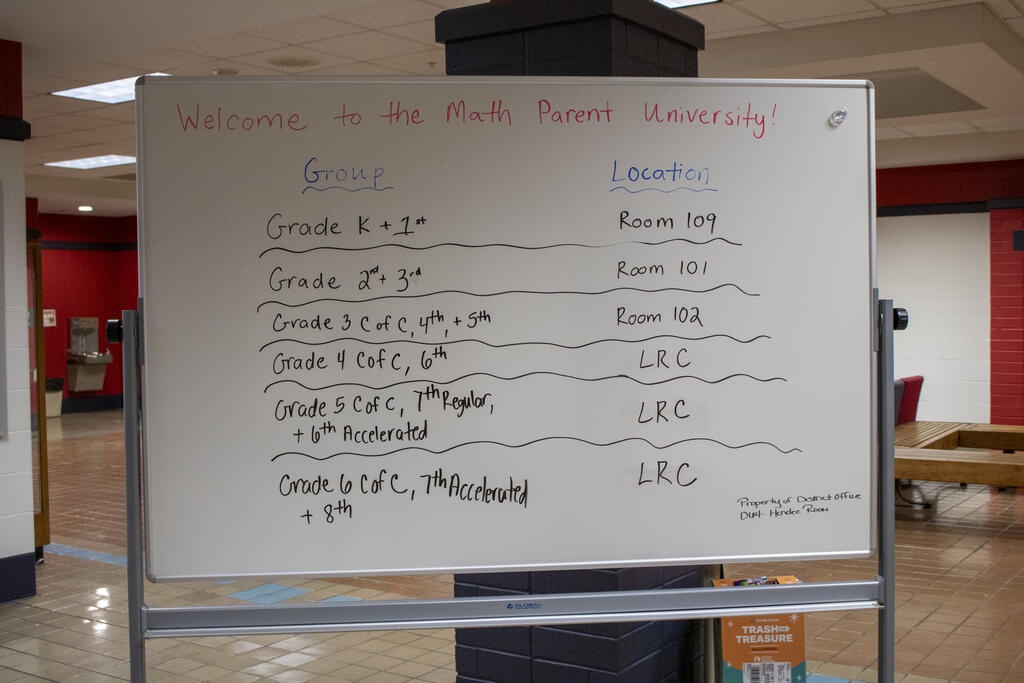 Welcome to the Math Parent University!
Group Location
Grade K + 1st Room 109
Grade 2nd + 3rd Room 101
Grade 3 C of C, 4th, + 5th Room 102
Grade 4 C of C, 6th LRC
Grade 5 C of C, 7th Regular, LRC
+ 6th Accelerated
Grade 6 C of C, 7th Accelerated LRC
+ 8th
Property of District Office
D44 Hendee Room
GLOBAL
TRASH
TREASURE